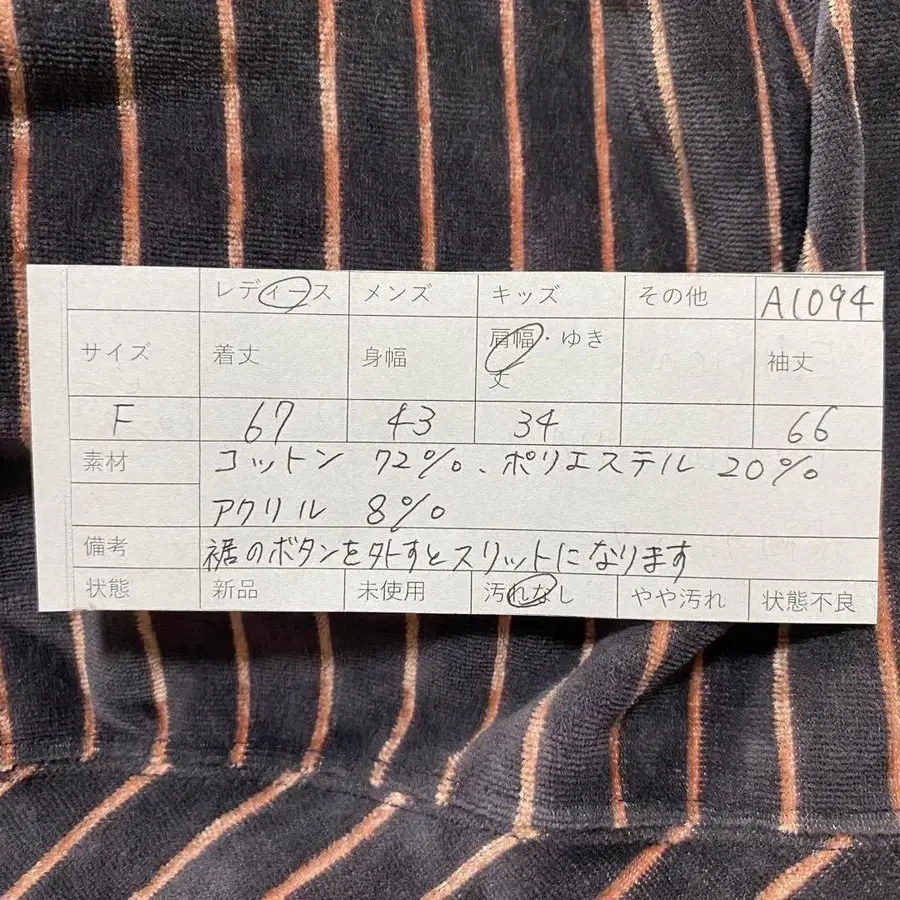 レディース メンズ キッズ その他 A1094
サイズ 着丈 身幅 肩幅・ゆき丈 袖丈
F 67 43 34 66
素材 コットン 72%、ポリエステル 20%
アクリル 8%
備考 裾のボタンを外すとスリットになります
状態 新品 未使用 汚れなし やや汚れ 状態不良